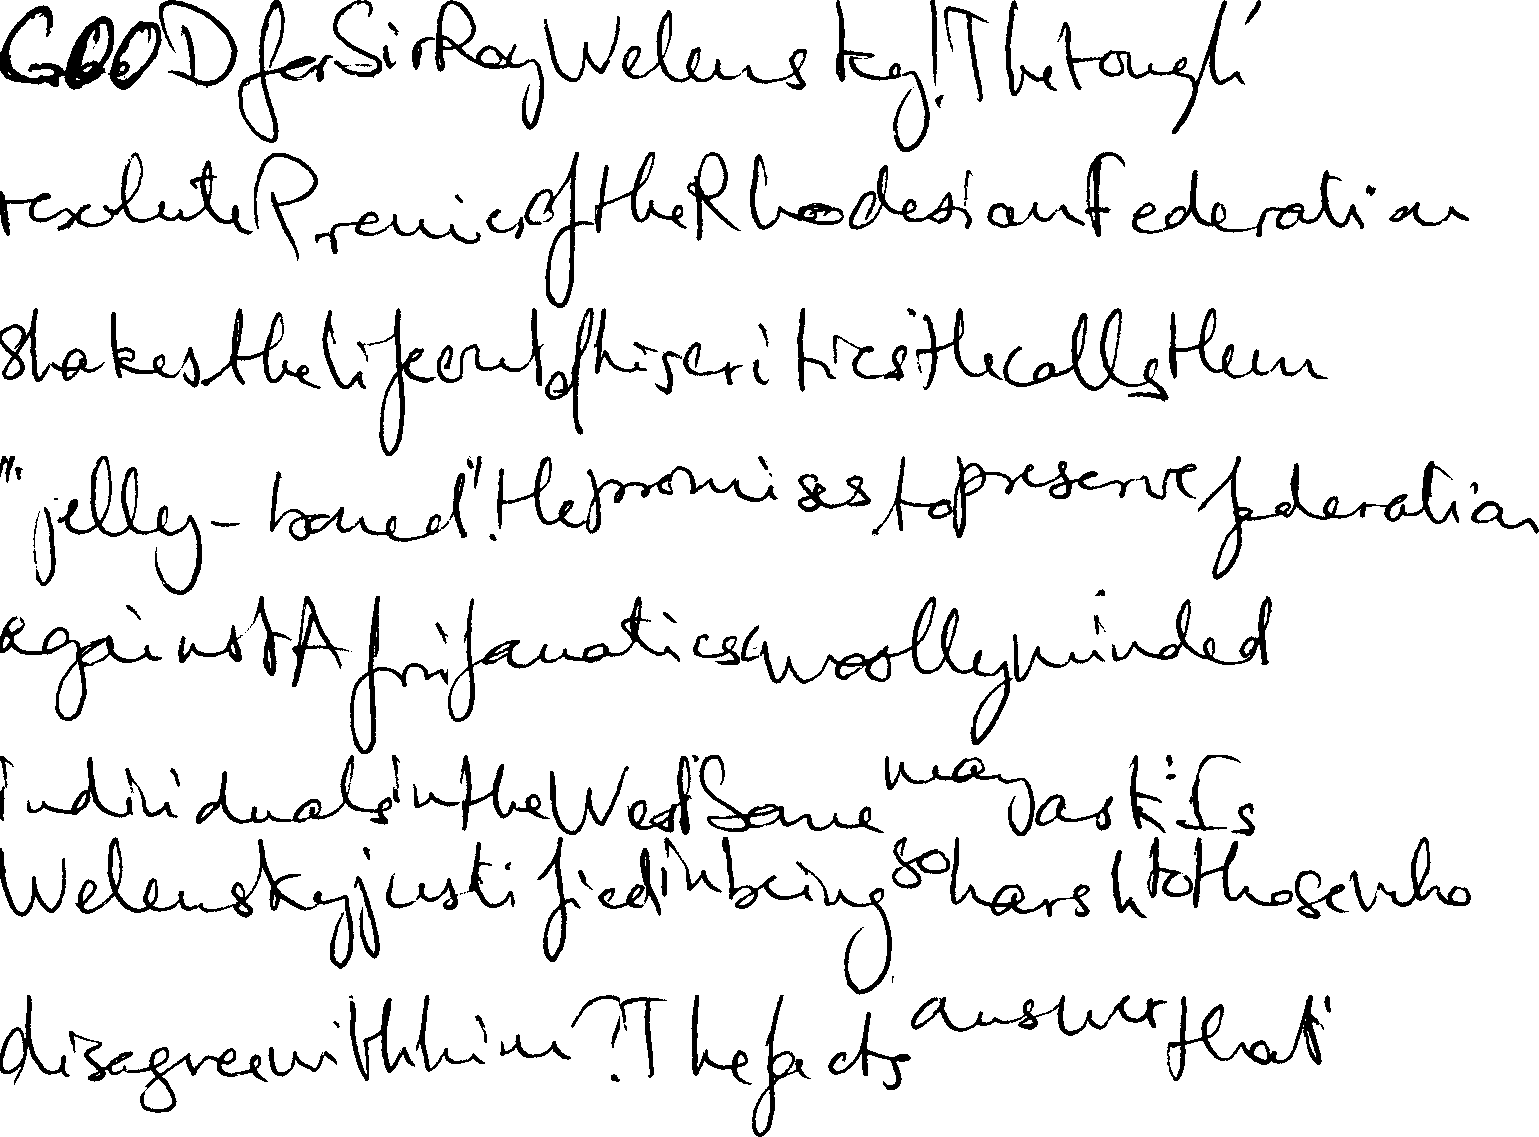 GOOD for Sir Roy Welensky! The tough,
resolute Premier of the Rhodesian Federation
shakes the life out of his critics. He calls them
"jelly-boned". He promises to preserve federation
against Afri fanatics & woolly minded
individuals in the West. Some may ask: Is
Welensky justified in being so harsh to those who
disagree with him? The facts answer that